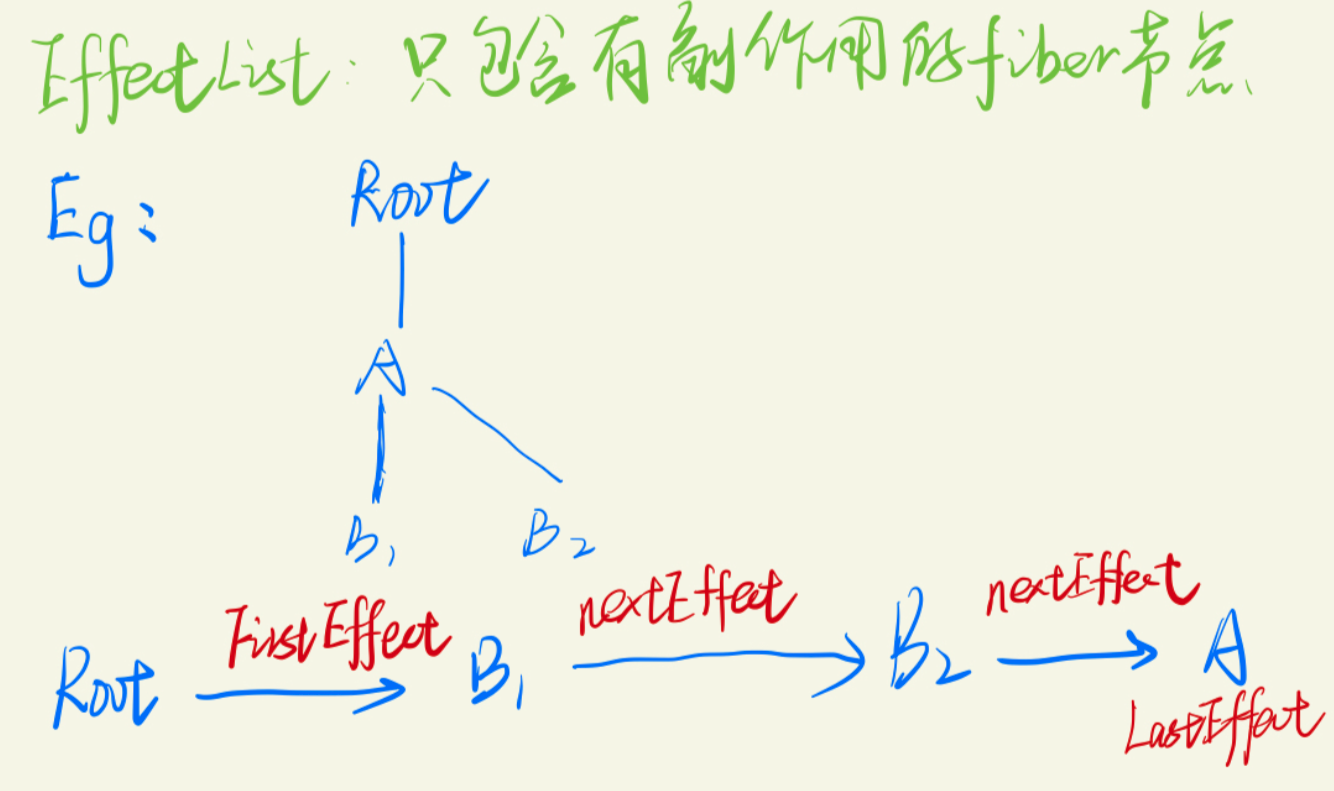 EffectList: 只包含有副作用的fiber节点
Eg:
Root
A
B1
B2
FirstEffect
nextEffect
nextEffect
Root
B1
B2
A
LastEffect